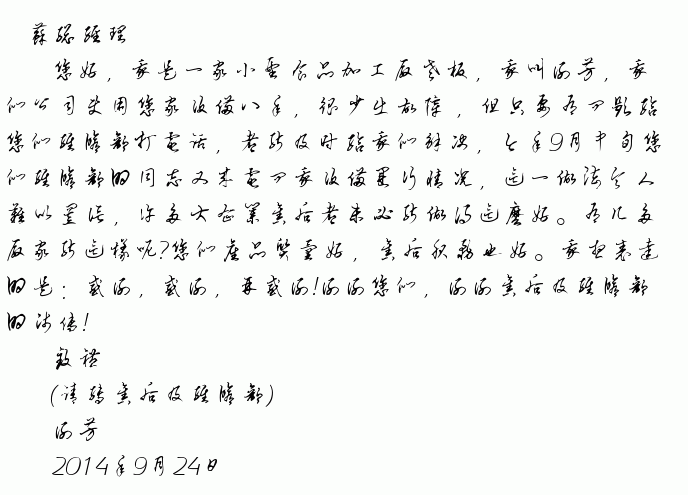 苏总经理
您好，我是一家小型食品加工厂老板，我叫谢芳，我
们公司使用您家设备八年，很少出故障，但只要有问题给
您们经瞻部打电话，都能及时给我们解决，今年9月中旬您
们经瞻部的同志又来电问我设备运行情况，这一做法令人
难以置信，许多大企业售后都未必能做得这麽好。有几多
厂家能这样呢?您们产品质量好，售后服务也好。我想表达
的是：感谢，感谢，再感谢!谢谢您们，谢谢售后及经瞻部
的师傅!
致礼
(请转售后及经瞻部)
谢芳
2014年9月24日